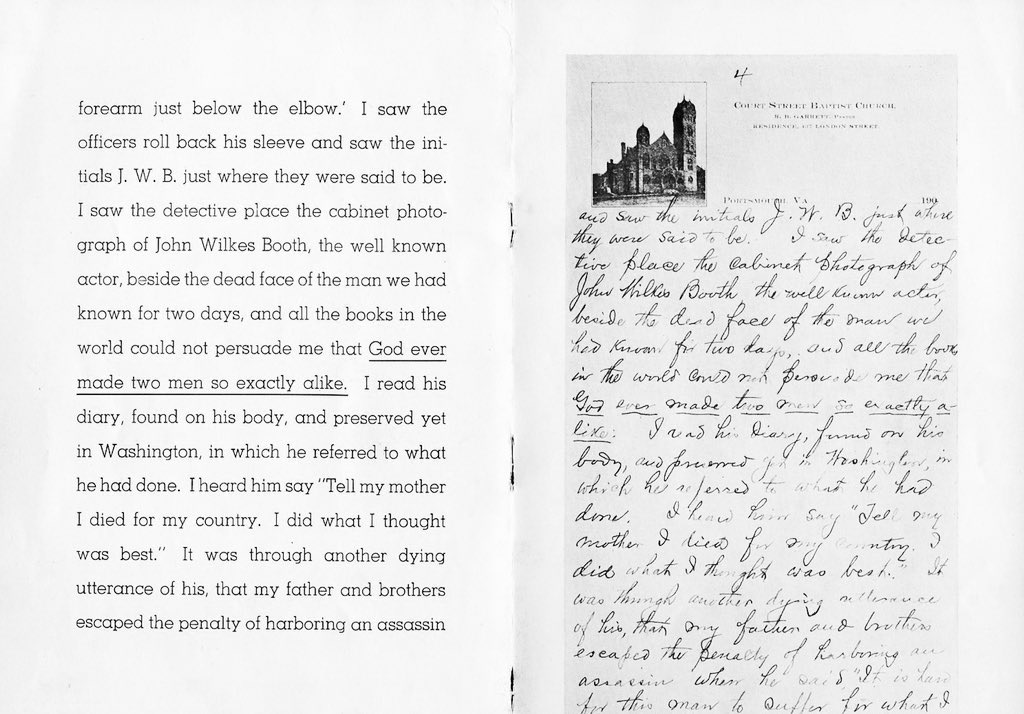 forearm just below the elbow.' I saw the
officers roll back his sleeve and saw the ini-
tials J. W. B. just where they were said to be.
I saw the detective place the cabinet photo-
graph of John Wilkes Booth, the well known
actor, beside the dead face of the man we had
known for two days, and all the books in the
world could not persuade me that God ever
made two men so exactly alike. I read his
diary, found on his body, and preserved yet
in Washington, in which he referred to what
he had done. I heard him say "Tell my mother
I died for my country. I did what I thought
was best." It was through another dying
utterance of his, that my father and brothers
escaped the penalty of harboring an assassin
4
Court Street Baptist Church,
R. B. Garrett, Pastor
Residence, 427 London Street
Portsmouth, Va 190
and saw the initials J. W. B. just where
they were said to be. I saw the detec-
tive place the cabinet photograph of
John Wilkes Booth, the well known actor,
beside the dead face of the man we
had known for two days, and all the books
in the world could not persuade me that
God ever made two men so exactly a-
like. I read his diary, found on his
body, and preserved yet in Washington, in
which he referred to what he had
done. I heard him say "Tell my
mother I died for my country. I
did what I thought was best." It
was through another dying utterance
of his, that my father and brothers
escaped the penalty of harboring an
assassin when he said "It is hard
for this man to suffer for what I